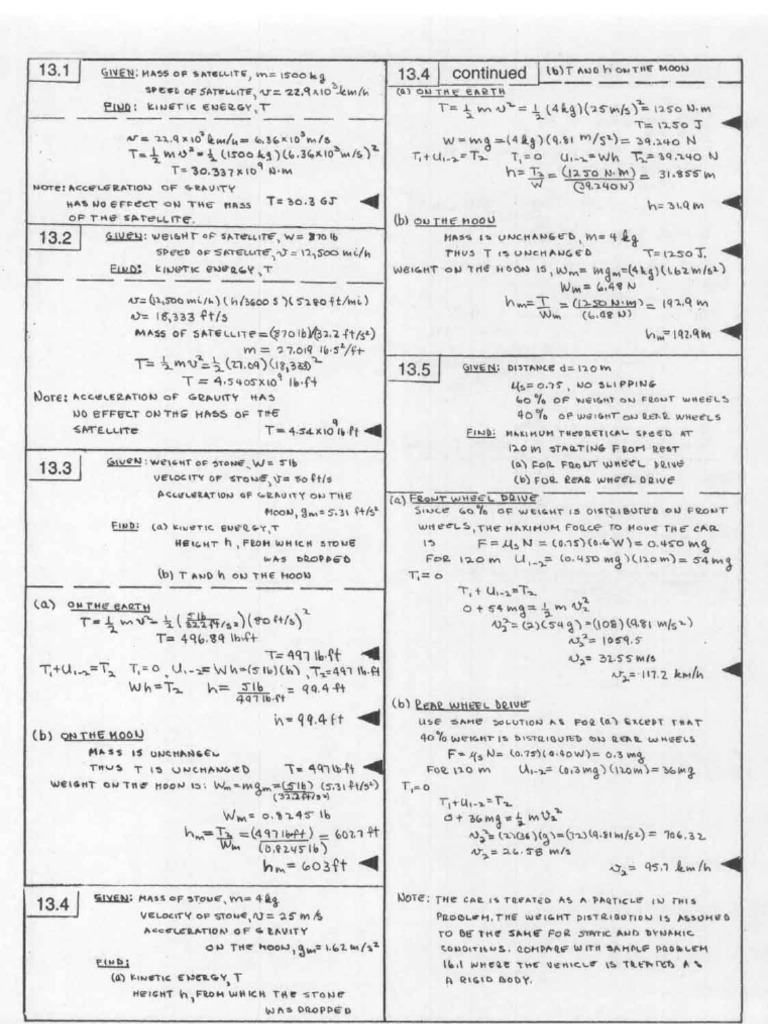 13.1
GIVEN: MASS OF SATELLITE, m = 1500 kg
SPEED OF SATELLITE, v = 22.9×10³ km/h
FIND: KINETIC ENERGY, T
v = 22.9×10³ km/h = 6.36×10³ m/s
T = 1/2 m v² = 1/2 (1500 kg)(6.36×10³ m/s)²
T = 30.337×10⁹ N·m
NOTE: ACCELERATION OF GRAVITY
HAS NO EFFECT ON THE MASS T = 30.3 GJ
OF THE SATELLITE.
13.2
GIVEN: WEIGHT OF SATELLITE, W = 870 lb
SPEED OF SATELLITE, v = 12,500 mi/h
FIND: KINETIC ENERGY, T
v = (12,500 mi/h)(h/3600 s)(5280 ft/mi)
v = 18,333 ft/s
MASS OF SATELLITE = (870 lb)/(32.2 ft/s²)
m = 27.019 lb·s²/ft
T = 1/2 m v² = 1/2 (27.09)(18,333)²
T = 4.5405×10⁹ lb·ft
NOTE: ACCELERATION OF GRAVITY HAS
NO EFFECT ON THE MASS OF THE
SATELLITE T = 4.54×10⁹ lb·ft
13.3
GIVEN: WEIGHT OF STONE, W = 5 lb
VELOCITY OF STONE, v = 80 ft/s
ACCELERATION OF GRAVITY ON THE
MOON, gm = 5.31 ft/s²
FIND: (a) KINETIC ENERGY, T
HEIGHT h, FROM WHICH STONE
WAS DROPPED
(b) T AND h ON THE MOON
(a) ON THE EARTH
T = 1/2 m v² = 1/2 (5 lb/32.2 ft/s²)(80 ft/s)²
T = 496.89 lb·ft
T = 497 lb·ft
T₁ + U₁₋₂ = T₂ T₁ = 0, U₁₋₂ = Wh = (5 lb)(h), T₂ = 497 lb·ft
Wh = T₂ h = 5 lb/497 lb·ft = 99.4 ft
h = 99.4 ft
(b) ON THE MOON
MASS IS UNCHANGED
THUS T IS UNCHANGED T = 497 lb·ft
WEIGHT ON THE MOON IS: Wm = mgm = (5 lb)/(32.2 ft/s²) (5.31 ft/s²)
Wm = 0.8245 lb
hm = T₂/Wm = (497 lb·ft)/(0.8245 lb) = 6027 ft
hm = 603 ft
13.4
GIVEN: MASS OF STONE, m = 4 kg
VELOCITY OF STONE, v = 25 m/s
ACCELERATION OF GRAVITY
ON THE MOON, gm = 1.62 m/s²
FIND:
(a) KINETIC ENERGY, T
HEIGHT h, FROM WHICH THE STONE
WAS DROPPED
13.4 continued
(b) T AND h ON THE MOON
(a) ON THE EARTH
T = 1/2 m v² = 1/2 (4 kg)(25 m/s)² = 1250 N·m
T = 1250 J
W = mg = (4 kg)(9.81 m/s²) = 39.240 N
T₁ + U₁₋₂ = T₂ T₁ = 0 U₁₋₂ = Wh T₂ = 39.240 N
h = T₂/W = (1250 N·M)/(39.240 N) = 31.855 m
h = 31.9 m
(b) ON THE MOON
MASS IS UNCHANGED, m = 4 kg
THUS T IS UNCHANGED T = 1250 J.
WEIGHT ON THE MOON IS, Wm = mgm = (4 kg)(1.62 m/s²)
Wm = 6.48 N
hm = T/Wm = (1250 N·m)/(6.48 N) = 192.9 m
hm = 192.9 m
13.5
GIVEN: DISTANCE d = 120 m
μs = 0.75, NO SLIPPING
60% OF WEIGHT ON FRONT WHEELS
40% OF WEIGHT ON REAR WHEELS
FIND: MAXIMUM THEORETICAL SPEED AT
120 m STARTING FROM REST
(a) FOR FRONT WHEEL DRIVE
(b) FOR REAR WHEEL DRIVE
(a) FRONT WHEEL DRIVE
SINCE 60% OF WEIGHT IS DISTRIBUTED ON FRONT
WHEELS, THE MAXIMUM FORCE TO MOVE THE CAR
IS F = μs N = (0.75)(0.6W) = 0.450 mg
FOR 120 m U₁₋₂ = (0.450 mg)(120 m) = 54 mg
T₁ = 0
T₁ + U₁₋₂ = T₂
0 + 54 mg = 1/2 m v₂²
v₂² = (2)(54 g) = (108)(9.81 m/s²)
v₂² = 1059.5
v₂ = 32.55 m/s
v₂ = 117.2 km/h
(b) REAR WHEEL DRIVE
USE SAME SOLUTION AS FOR (a) EXCEPT THAT
40% WEIGHT IS DISTRIBUTED ON REAR WHEELS
F = μs N = (0.75)(0.40W) = 0.3 mg
FOR 120 m U₁₋₂ = (0.3 mg)(120 m) = 36 mg
T₁ = 0
T₁ + U₁₋₂ = T₂
0 + 36 mg = 1/2 m v₂²
v₂² = (2)(36)(g) = (72)(9.81 m/s²) = 706.32
v₂ = 26.58 m/s
v₂ = 95.7 km/h
NOTE: THE CAR IS TREATED AS A PARTICLE IN THIS
PROBLEM. THE WEIGHT DISTRIBUTION IS ASSUMED
TO BE THE SAME FOR STATIC AND DYNAMIC
CONDITIONS. COMPARE WITH SAMPLE PROBLEM
16.1 WHERE THE VEHICLE IS TREATED AS
A RIGID BODY.